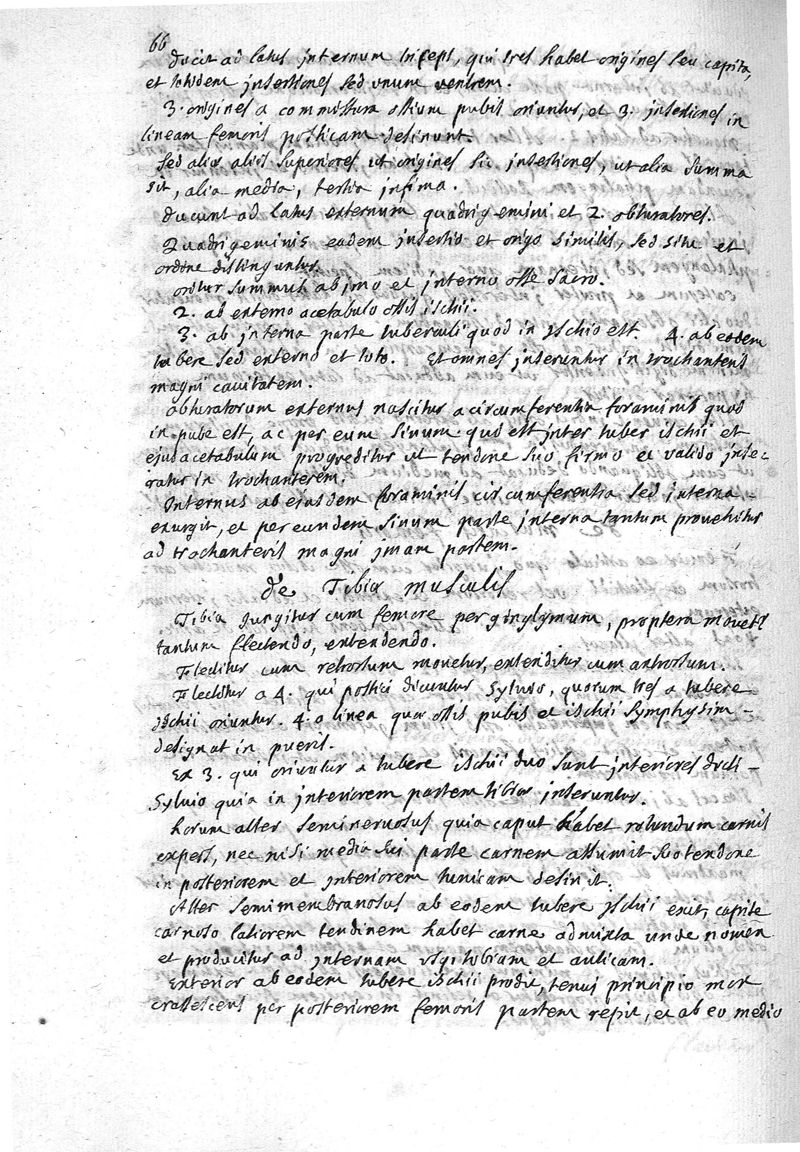 66
ducit ad latus internum triceps, qui tres habet origines seu capita,
et totidem insertiones sed unum ventrem.
3. origines a commissura ossium pubis oriuntur, et 3. insertiones in
lineam femoris posticam desinunt.
sed aliæ aliis superiores ut origines sic insertiones, ut alia summa
sit, alia media, tertia infima.
ducunt ad latus externum quadrigemini et 2. obturatores.
Quadrigeminis eadem insertio et origo similis, sed situ et
ordine distinguntur.
oritur summus ab imo et interno osse sacro.
2. ab externo acetabulo ossis ischii.
3. ab interna parte tuberculi quod in ischio est. 4. ab eodem
tubere sed externo et toto. Et omnes inseruntur in trochanteris
magni cavitatem.
obturatorum externus nascitur a circumferentia foraminis quod
in pube est, ac per eum sinum qui est inter tuber ischii et
ejus acetabulum progreditur ut tendine suo firmo et valido inse-
ratur in trochanterem.
Internus ab ejusdem foraminis circumferentia sed interna
exurgit, et per eundem sinum parte interna tantum provehitur
ad trochanteris magni imam partem.
de Tibiæ musculis
Tibia jungitur cum femore per ginglymum, propterea movetur
tantum flectendo, extendendo.
Flectitur cum retrorsum movetur, extenditur cum antrorsum.
Flectitur a 4. qui postici dicuntur Sylvio, quorum tres a tubere
ischii oriuntur. 4. a linea quæ ossis pubis et ischii symphysim
designat in pueris.
Ex 3. qui oriuntur a tubere ischii duo sunt interiores dicti
Sylvio quia in interiorem partem tibiæ inseruntur.
horum alter seminervosus quia caput habet rotundum carnis
expers, nec nisi media sui parte carnem assumit suo tendone
in posteriorem et interiorem desinit.
Alter semimembranosus ab eodem tubere ischii exit, capite
carnoso latiorem tendinem habet carne admixta unde nomen
et producitur ad internam
Exterior ab eodem tubere ischii prodit, tenui principio mox
crassescens per posteriorem femoris partem repit, et ab eo medio